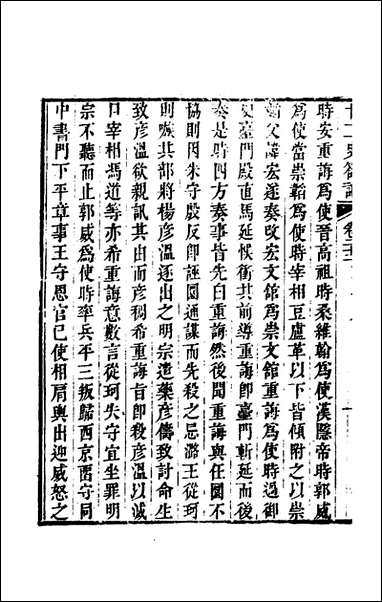 廿二史劄記 卷二十二
時安重誨爲使晉高祖時桑維翰爲使漢隱帝時郭威
爲使當崇韜爲使時宰相豆盧革以下皆傾附之以崇
韜父諱宏遂奏改宏文館爲崇文館重誨爲使時過御
史臺門殿直馬延候衝其前導重誨卽臺門斬延而後
奏是時四方奏事皆先白重誨然後聞重誨與任圜不
協則因朱守殷反卽誣圜通謀而先殺之忌潞王從珂
則嗾其部將楊彥溫逐出之明宗遣藥彥儔致討命生
致彥溫欲親訊其出而彥稠希重誨旨卽殺彥溫以滅
口宰相馮道等亦希重誨意數言從珂失守宜坐罪明
宗不聽而止郭威爲使時率兵平三叛歸西京留守同
中書門下平章事王守恩官已使相肩輿出迎威怒之